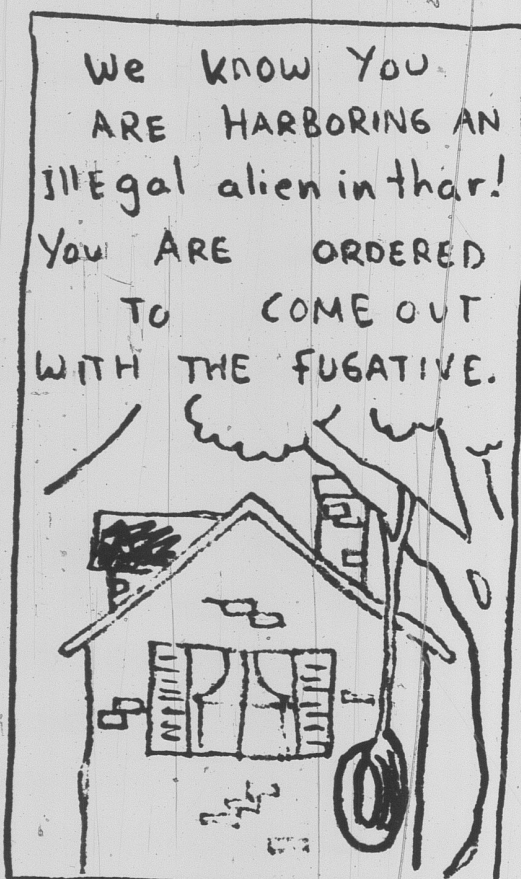 We know You
ARE HARBORING AN
IllEgal alien in thar!
You ARE ORDERED
TO COME OUT
WITH THE FUGATIVE.